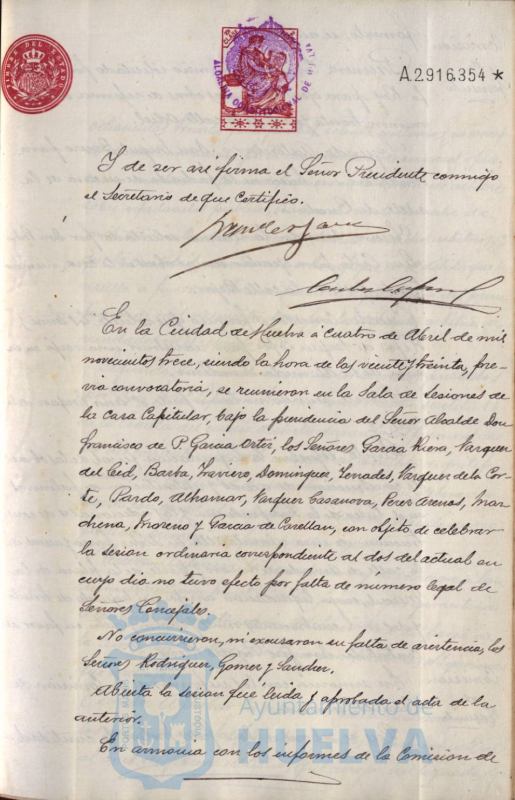 TIMBRE DEL ESTADO
A2.916.354 *
Y de ser asi firma el Señor Presidente conmigo
el Secretario de que certifico.
En la Ciudad de Huelva á cuatro de Abril de mil
novecientos trece, siendo la hora de las veinte y treinta, pre-
via convocatoria, se reunieron en la Sala de Sesiones de
la casa Capitular, bajo la presidencia del Señor Alcalde Don
Francisco de P. Garcia Ortiz, los Señores Garcia Riera, Vazquez
del Cid, Barba, Traviero, Dominguez, Tenades, Vazquez de la Cor-
te, Pardo, Alhamar, Vazquez Casanova, Perez Arenas, Mar-
chena, Moreno y Garcia de Castellan, con objeto de celebrar
la sesion ordinaria correspondiente al dos del actual en
cuyo dia no tuvo efecto por falta de número legal de
Señores Concejales.
No concurrieron, ni excusaron su falta de asistencia, los
Señores Rodriguez, Gomez y Sanchez.
Abierta la sesion fué leida y aprobada el acta de la
anterior.
Ayuntamiento de
HUELVA
En armonia con los informes de la Comision de